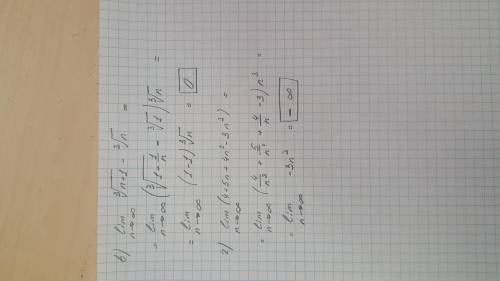 в) lim n→∞ ∛(n+1) − ∛n =
= lim n→∞ (∛(1+1/n) − ∛1) ∛n =
= lim n→∞ (1−1) ∛n = 0
г) lim n→∞ (4+5n+4n²−3n³) =
= lim n→∞ (4/n³ + 5/n² + 4/n −3) n³ =
= lim n→∞ −3n³ = −∞